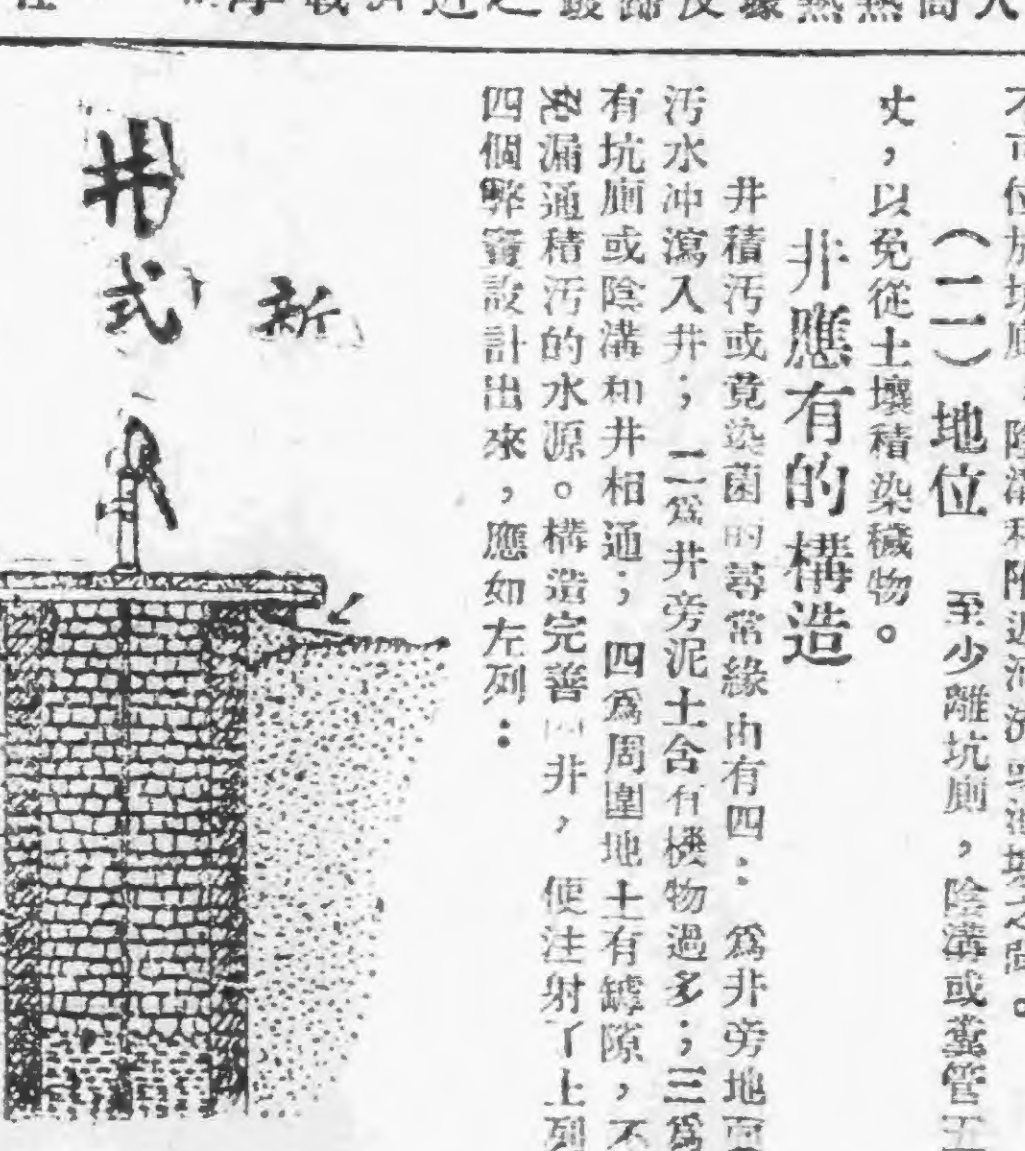 不可位於坑廁，陰溝和附近
（二）地位　至少離坑廁，陰溝或糞管五
丈，以免從土壤積染穢物。
井應有的構造
井積污或竟染菌的尋常緣由有四：為井旁地面
污水冲瀉入井；二為井旁泥土含有機物過多；三為
有坑廁或陰溝和井相通；四為周圍地土有罅隙，不
免漏通積污的水源。構造完善的井，便注射了上列
四個弊竇設計出來，應如左列：
新
式
井